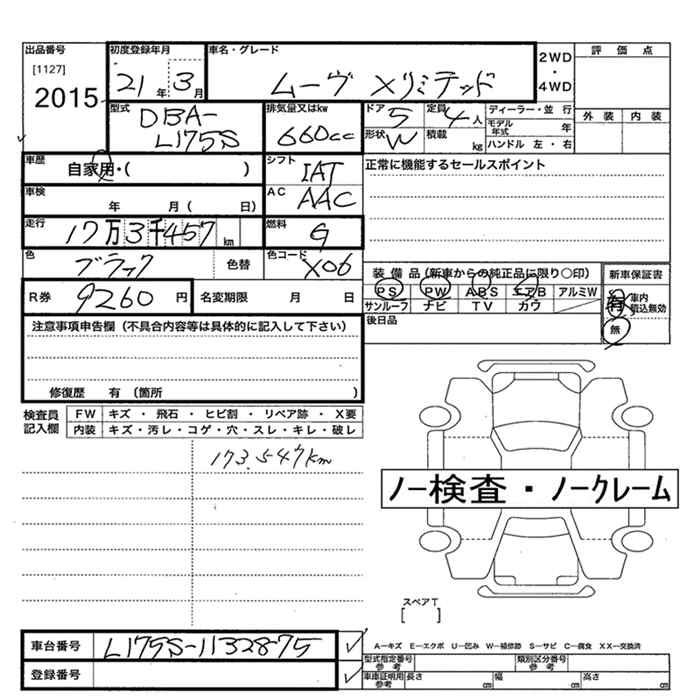 出品番号 初度登録年月 車名・グレード 2WD・4WD 評価点
[1127]
2015 21年 3月 ムーヴ Xリミテッド
型式 排気量又はkw ドア 定員 ディーラー・並行 外装 内装
DBA-L175S 660cc 5 4人 モデル年式 年
形状 W 積載 kg ハンドル 左・右
車歴 シフト 正常に機能するセールスポイント
自家用・( ) IAT
車検 AC
年 月 ( 日) AAC
走行 燃料
17万3千457km G
色 色コード
ブラック 色替 X06
装備品(新車からの純正品に限り○印) 新車保証書
PS PW ABS エアB アルミW 有 車内積込無効
R券 9260円 名変期限 月 日 サンルーフ ナビ TV カワ
後日品 無
注意事項申告欄(不具合内容等は具体的に記入して下さい)
修復歴 有 (箇所 )
検査員記入欄 FW キズ・飛石・ヒビ割・リペア跡・X要
内装 キズ・汚レ・コゲ・穴・スレ・キレ・破レ
173.547km
ノー検査・ノークレーム
スペアT
[ ]
車台番号 L175S-1132875
A−キズ E−エクボ U−凹み W−補修跡 S−サビ C−腐食 XX−交換済
登録番号
型式指定番号 参考 類別区分番号 参考
車庫証明用 参考 長さ cm 幅 cm 高さ cm